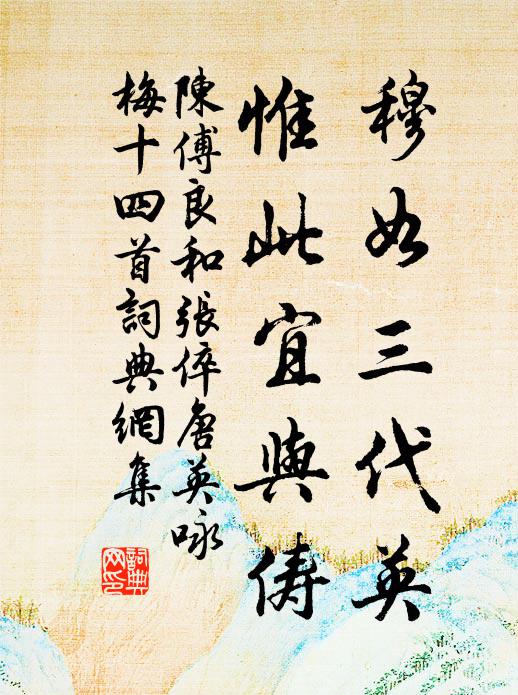 穆如三代英
惟此宜與儔
陳傅良和張倅唐英咏
梅十四首詞典網集
詞典
网印